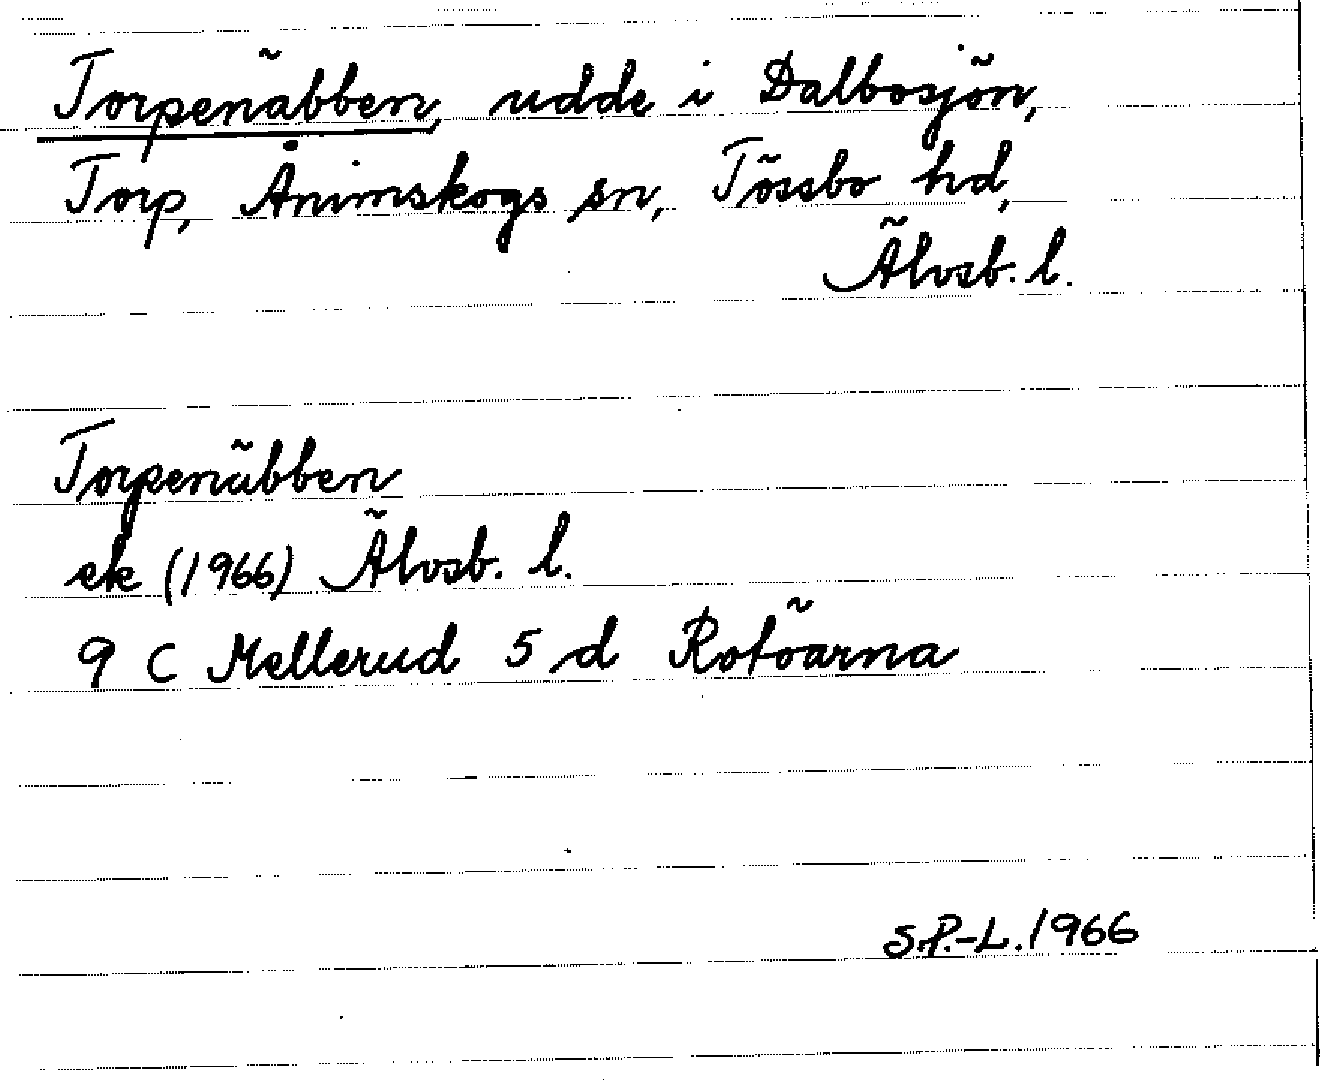 Torpenäbben, udde i Dalbosjön,
Torp, Ånimskogs sn, Tössbo hd,
Älvsb. l.
Torpenäbben
ek (1966) Älvsb. l.
9 C Mellerud 5 d Rotöarna
S.P.-L. 1966